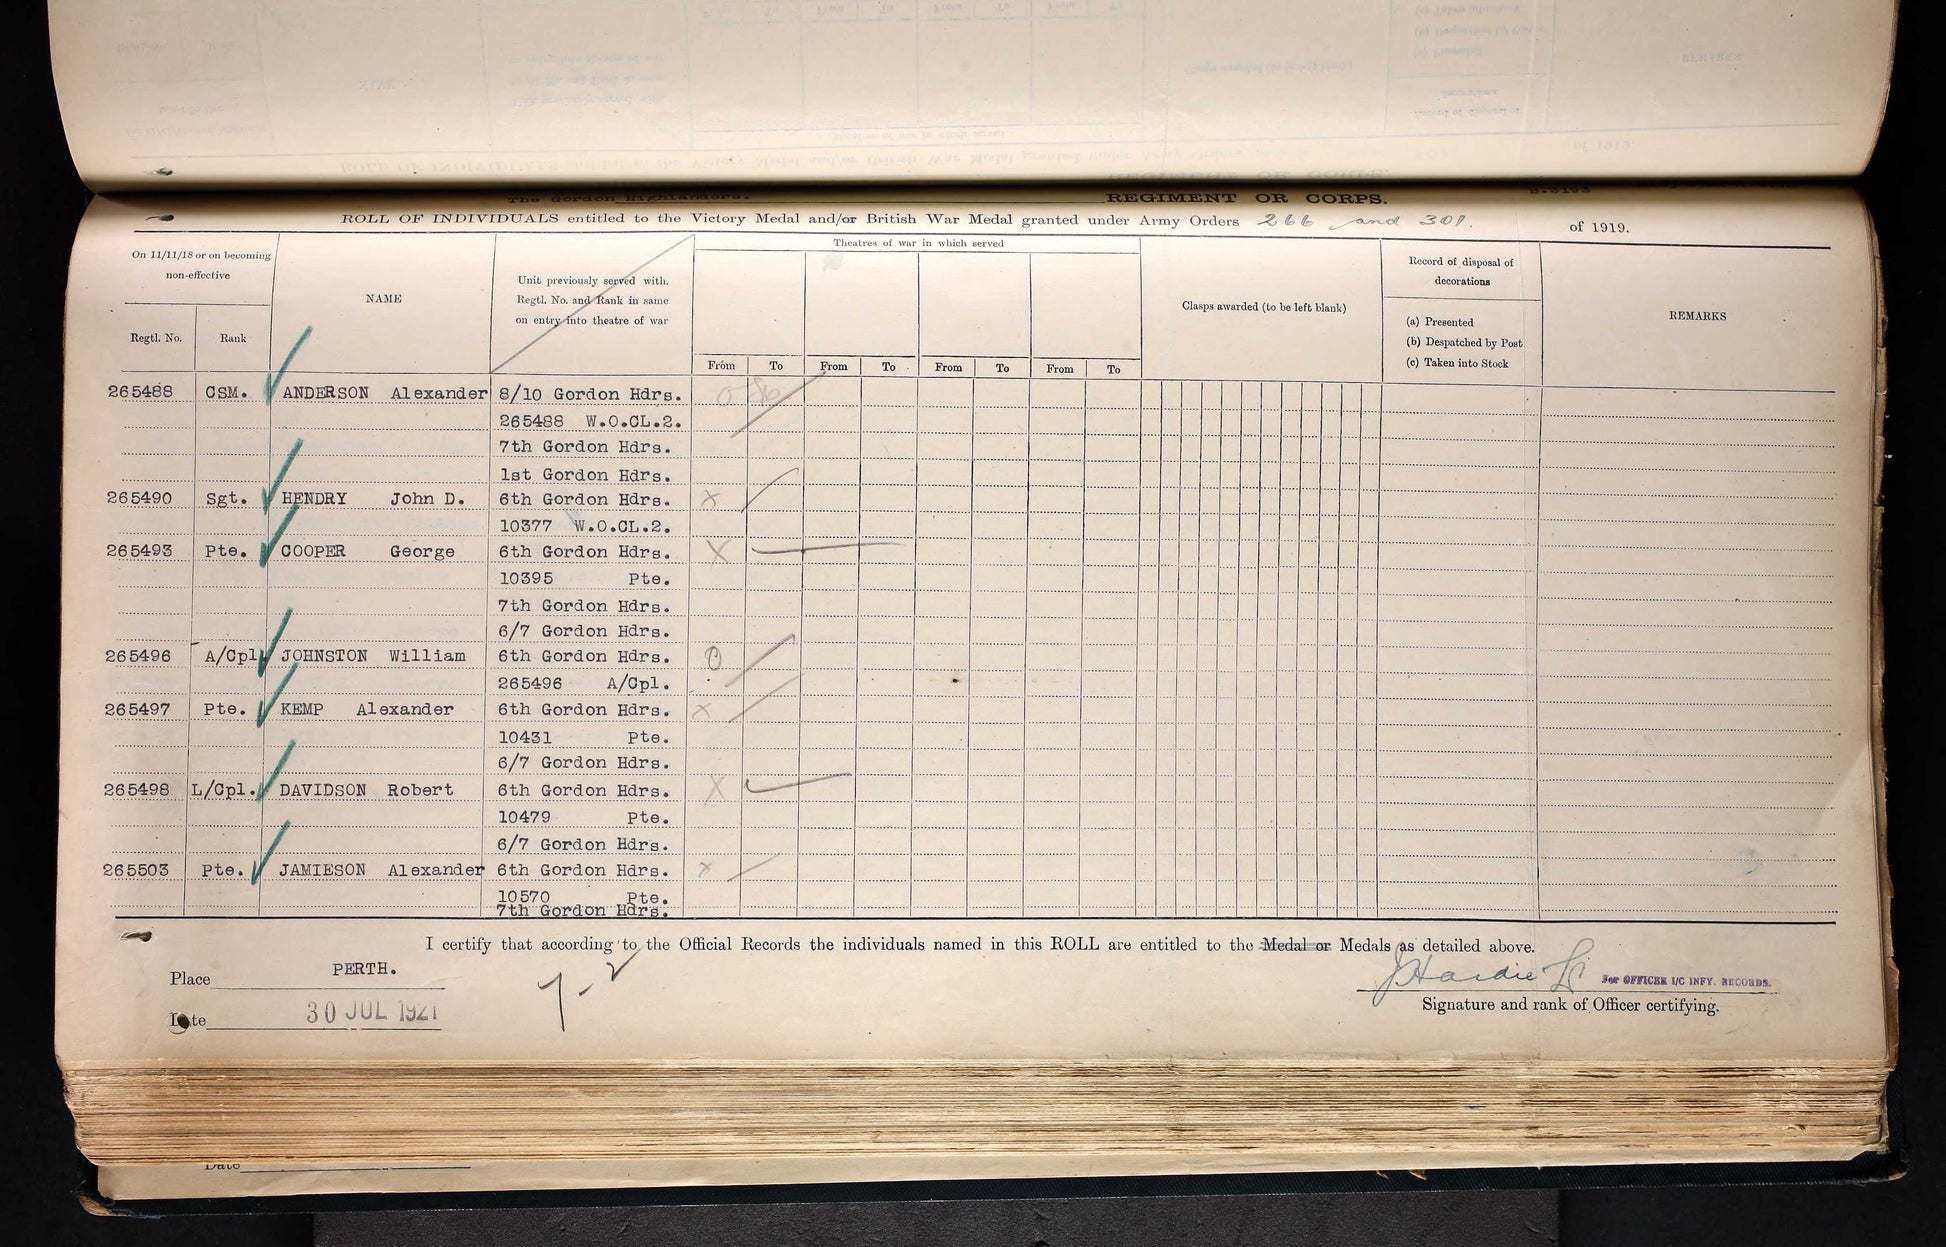 The Gordon Highlanders. REGIMENT OR CORPS. B.2193
ROLL OF INDIVIDUALS entitled to the Victory Medal and/or British War Medal granted under Army Orders 266 and 301. of 1919.
On 11/11/18 or on becoming non-effective
Regtl. No.
Rank
NAME
Unit previously served with.
Regtl. No. and Rank in same
on entry into theatre of war
Theatres of war in which served
From To From To From To From To
Clasps awarded (to be left blank)
Record of disposal of
decorations
(a) Presented
(b) Despatched by Post
(c) Taken into Stock
REMARKS
265488 CSM. ANDERSON Alexander 8/10 Gordon Hdrs.
265488 W.O.CL.2.
7th Gordon Hdrs.
1st Gordon Hdrs.
265490 Sgt. HENDRY John D. 6th Gordon Hdrs. X
10377 W.O.CL.2.
265493 Pte. COOPER George 6th Gordon Hdrs. X
10395 Pte.
7th Gordon Hdrs.
6/7 Gordon Hdrs.
265496 A/Cpl JOHNSTON William 6th Gordon Hdrs.
265496 A/Cpl.
265497 Pte. KEMP Alexander 6th Gordon Hdrs. X
10431 Pte.
6/7 Gordon Hdrs.
265498 L/Cpl. DAVIDSON Robert 6th Gordon Hdrs. X
10479 Pte.
6/7 Gordon Hdrs.
265503 Pte. JAMIESON Alexander 6th Gordon Hdrs. X
10570 Pte.
7th Gordon Hdrs.
I certify that according to the Official Records the individuals named in this ROLL are entitled to the Medal or Medals as detailed above.
Place PERTH.
7-2
J Hardie Lt For OFFICER I/C INFY. RECORDS.
Signature and rank of Officer certifying.
Date 30 JUL 1921
Date